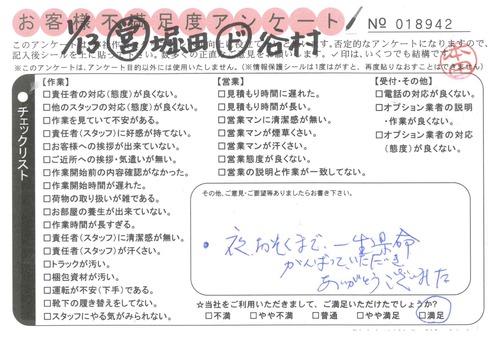 お客様不満足度アンケート
No 018942
1/13 営 堀田 ド 谷村
チェックリスト
【作業】
□責任者の対応(態度)が良くない。
□他のスタッフの対応(態度)が良くない。
□作業を見ていて不安がある。
□責任者(スタッフ)に好感が持てない。
□お客様への挨拶が出来ていない。
□ご近所への挨拶・気遣いが無い。
□作業開始前の内容確認がなかった。
□作業開始時間が遅れた。
□荷物の取り扱いが雑である。
□お部屋の養生が出来ていない。
□作業時間が長すぎる。
□責任者(スタッフ)に清潔感が無い。
□責任者(スタッフ)が汗くさい。
□トラックが汚い。
□梱包資材が汚い。
□運転が不安(下手)である。
□靴下の履き替えをしてない。
□スタッフにやる気がみられない。
【営業】
□見積もり時間に遅れた。
□見積もり時間が長い。
□営業マンに清潔感が無い。
□営業マンが煙草くさい。
□営業マンが汗くさい。
□営業態度が良くない。
□営業の説明と作業が一致してない。
【受付・その他】
□電話の対応が良くない。
□オプション業者の説明
・作業が良くない。
□オプション業者の対応
(態度)が良くない。
その他、ご意見・ご要望等ありましたらお書き下さい。
・夜、おそくまで、一生懸命
がんばっていただき
ありがとうございました
☆当社をご利用いただきまして、ご満足いただけたでしょうか?
□不満 □やや不満 □普通 □やや満足 □満足